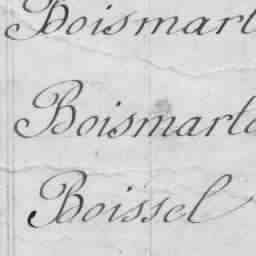 Boismart
Boismarta
Boissel